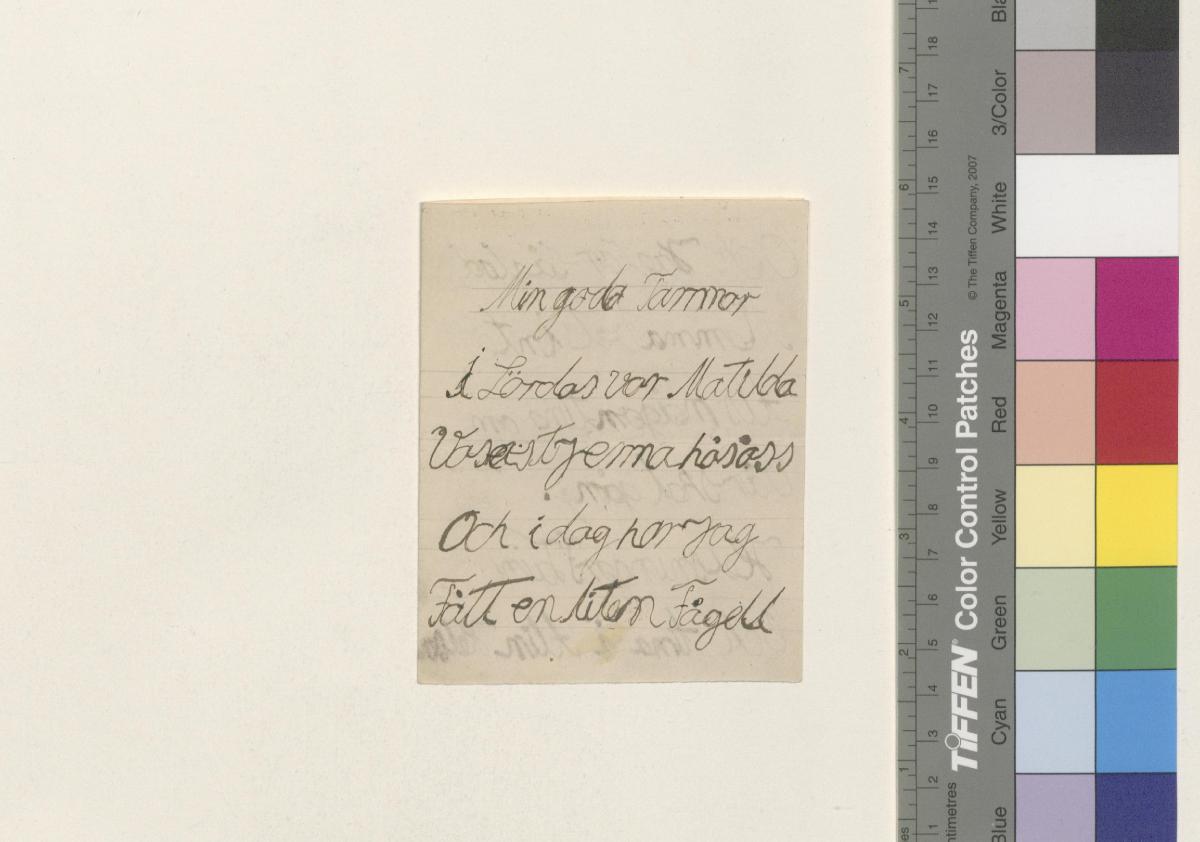 Min goda Farmor
i Lördas var Matilda
Vasastjerna hos oss
Och i dag har Jag
Fått en liten Fågell
18
17
16
15
14
13
12
11
10
9
8
7
6
5
4
3
2
1
7
6
5
4
3
2
1
© The Tiffen Company, 2007
TIFFEN® Color Control Patches
3/Color
White
Magenta
Red
Yellow
Green
Cyan
Blue